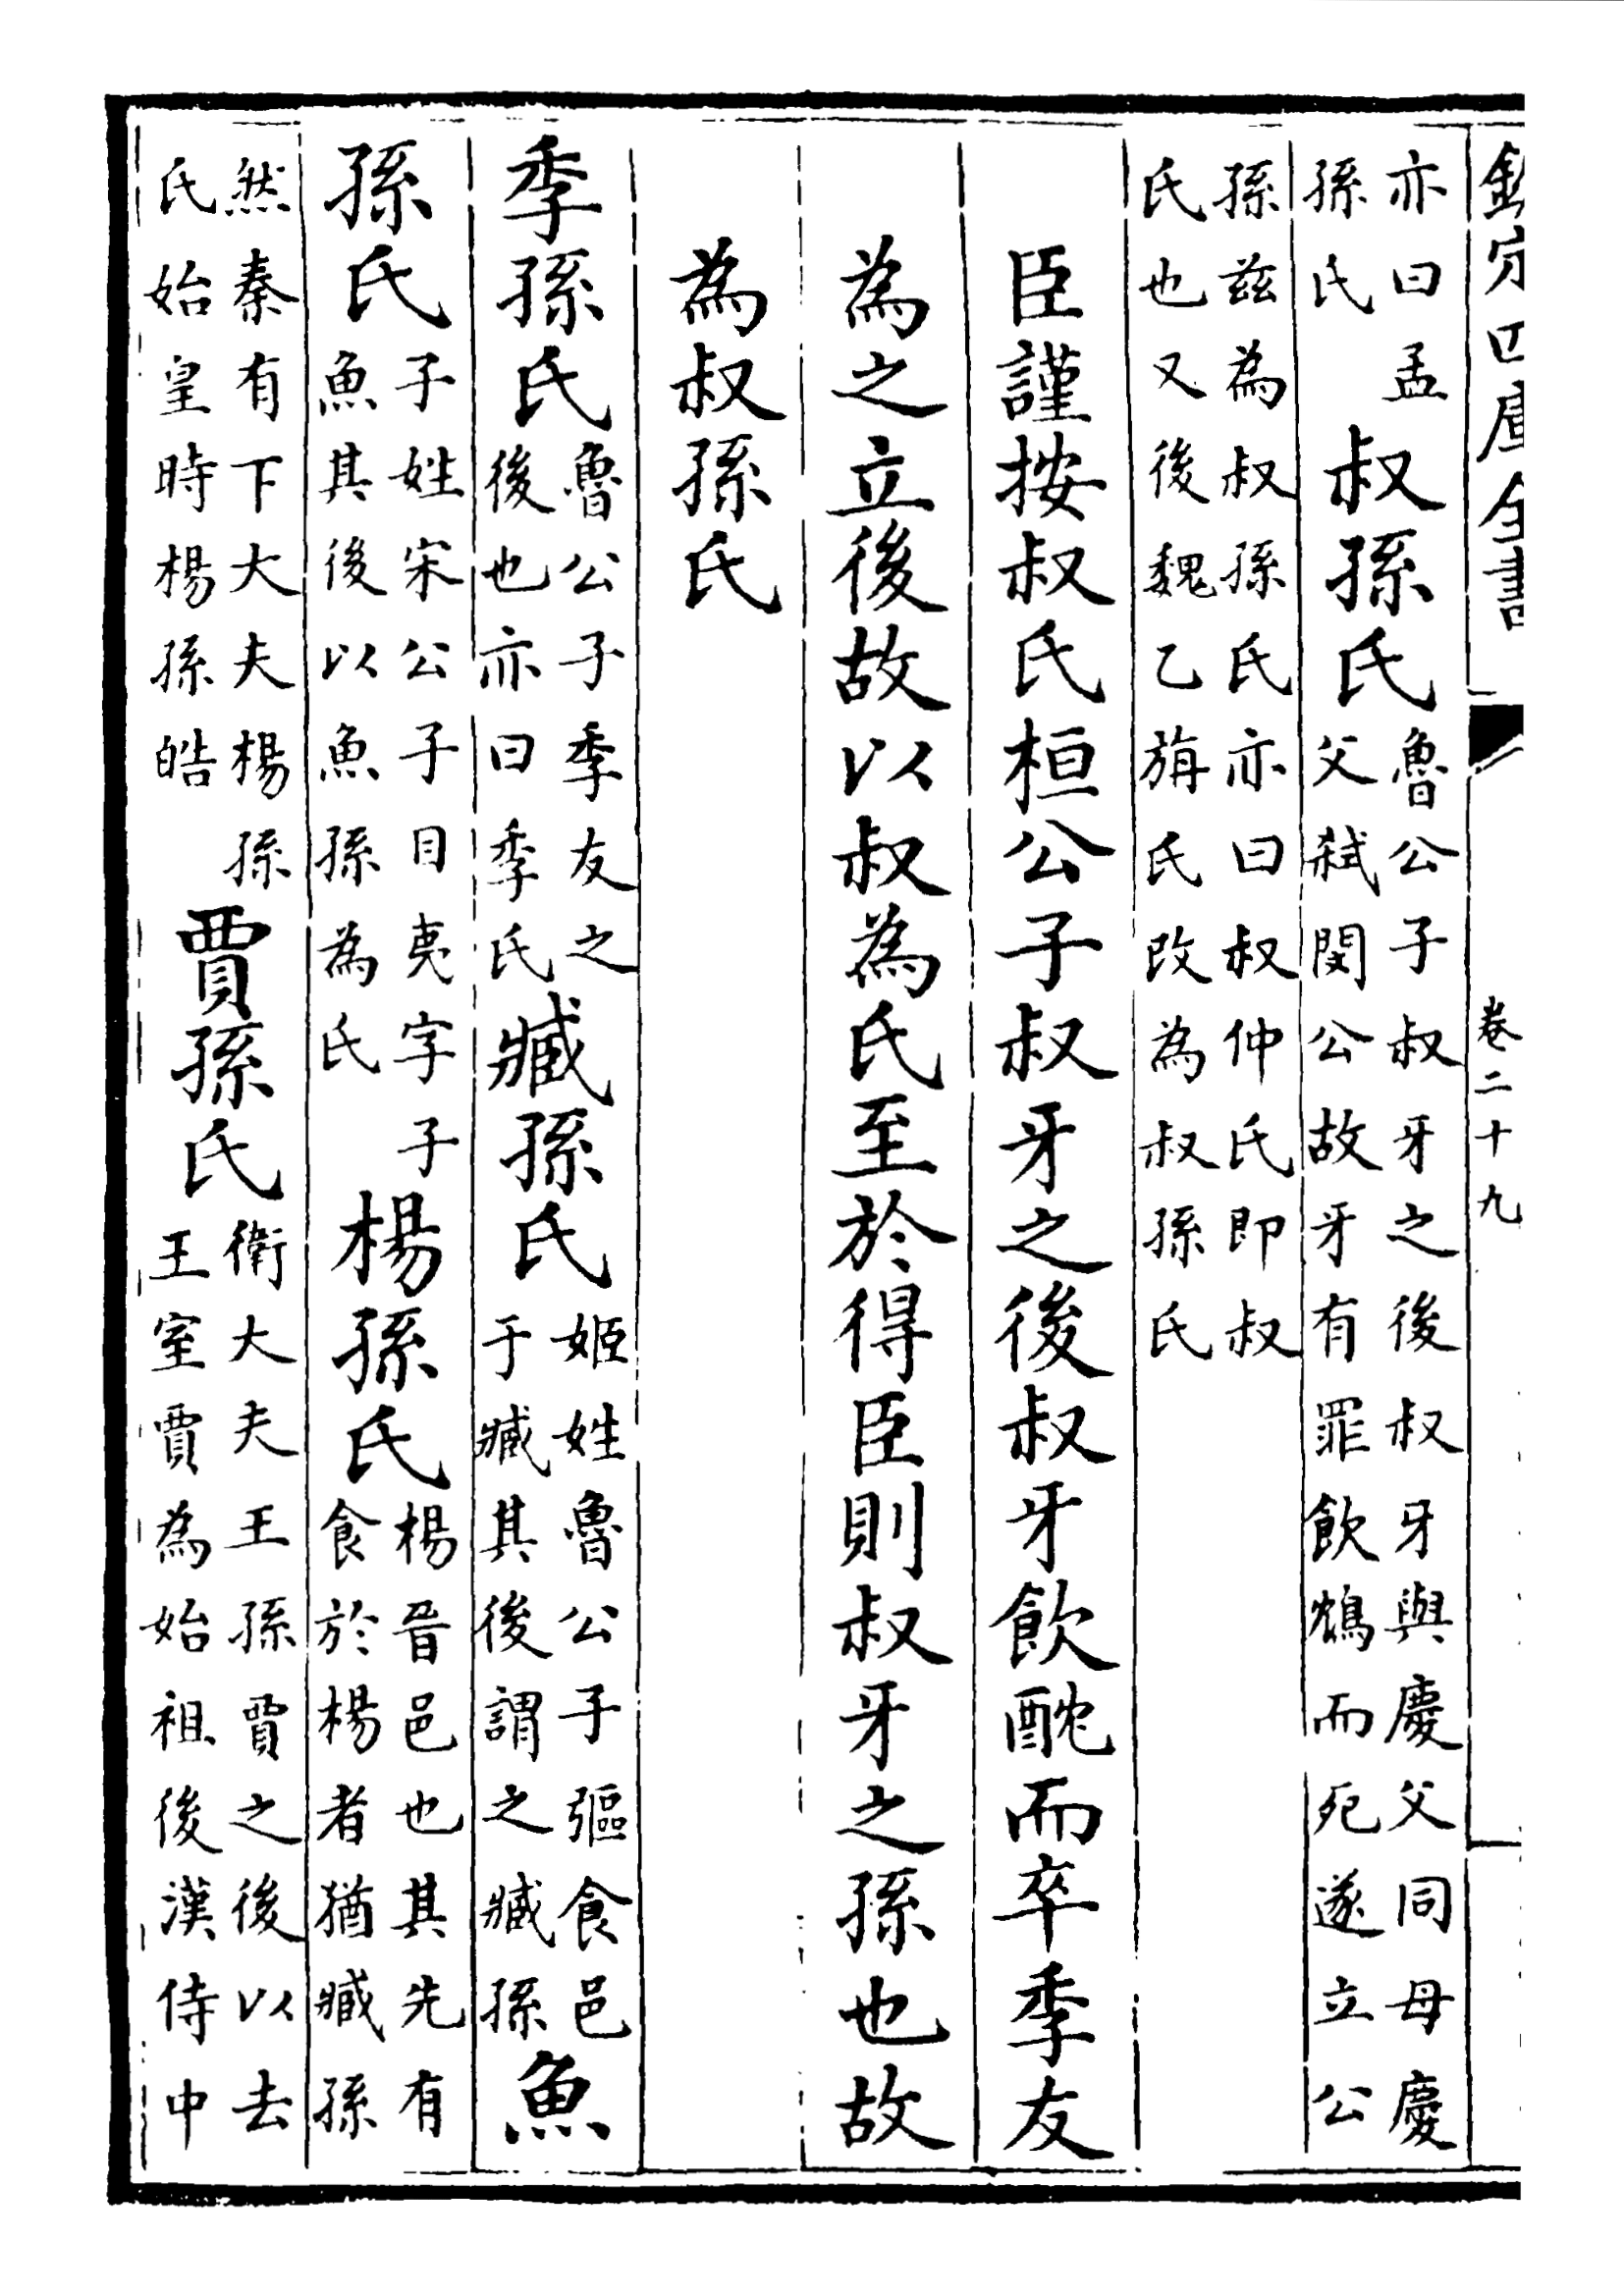 欽定四庫全書 卷二十九
亦曰孟
孫氏
叔孫氏
魯公子叔牙之後叔牙與慶父同母慶
父弑閔公故牙有罪飲鴆而死遂立公
孫兹為叔孫氏亦曰叔仲氏即叔
氏也又後魏乙旃氏改為叔孫氏
臣謹按叔氏桓公子叔牙之後叔牙飲酖而卒季友
為之立後故以叔為氏至於得臣則叔牙之孫也故
為叔孫氏
季孫氏
魯公子季友之
後也亦曰季氏
臧孫氏
姬姓魯公子彄食邑
于臧其後謂之臧孫
魚
孫氏
子姓宋公子子目夷字子
魚其後以魚孫為氏
楊孫氏
楊晉邑也其先有
食於楊者猶臧孫
然秦有下大夫楊孫
氏始皇時楊孫皓
賈孫氏
衛大夫王孫賈之後以去
王室賈為始祖後漢侍中